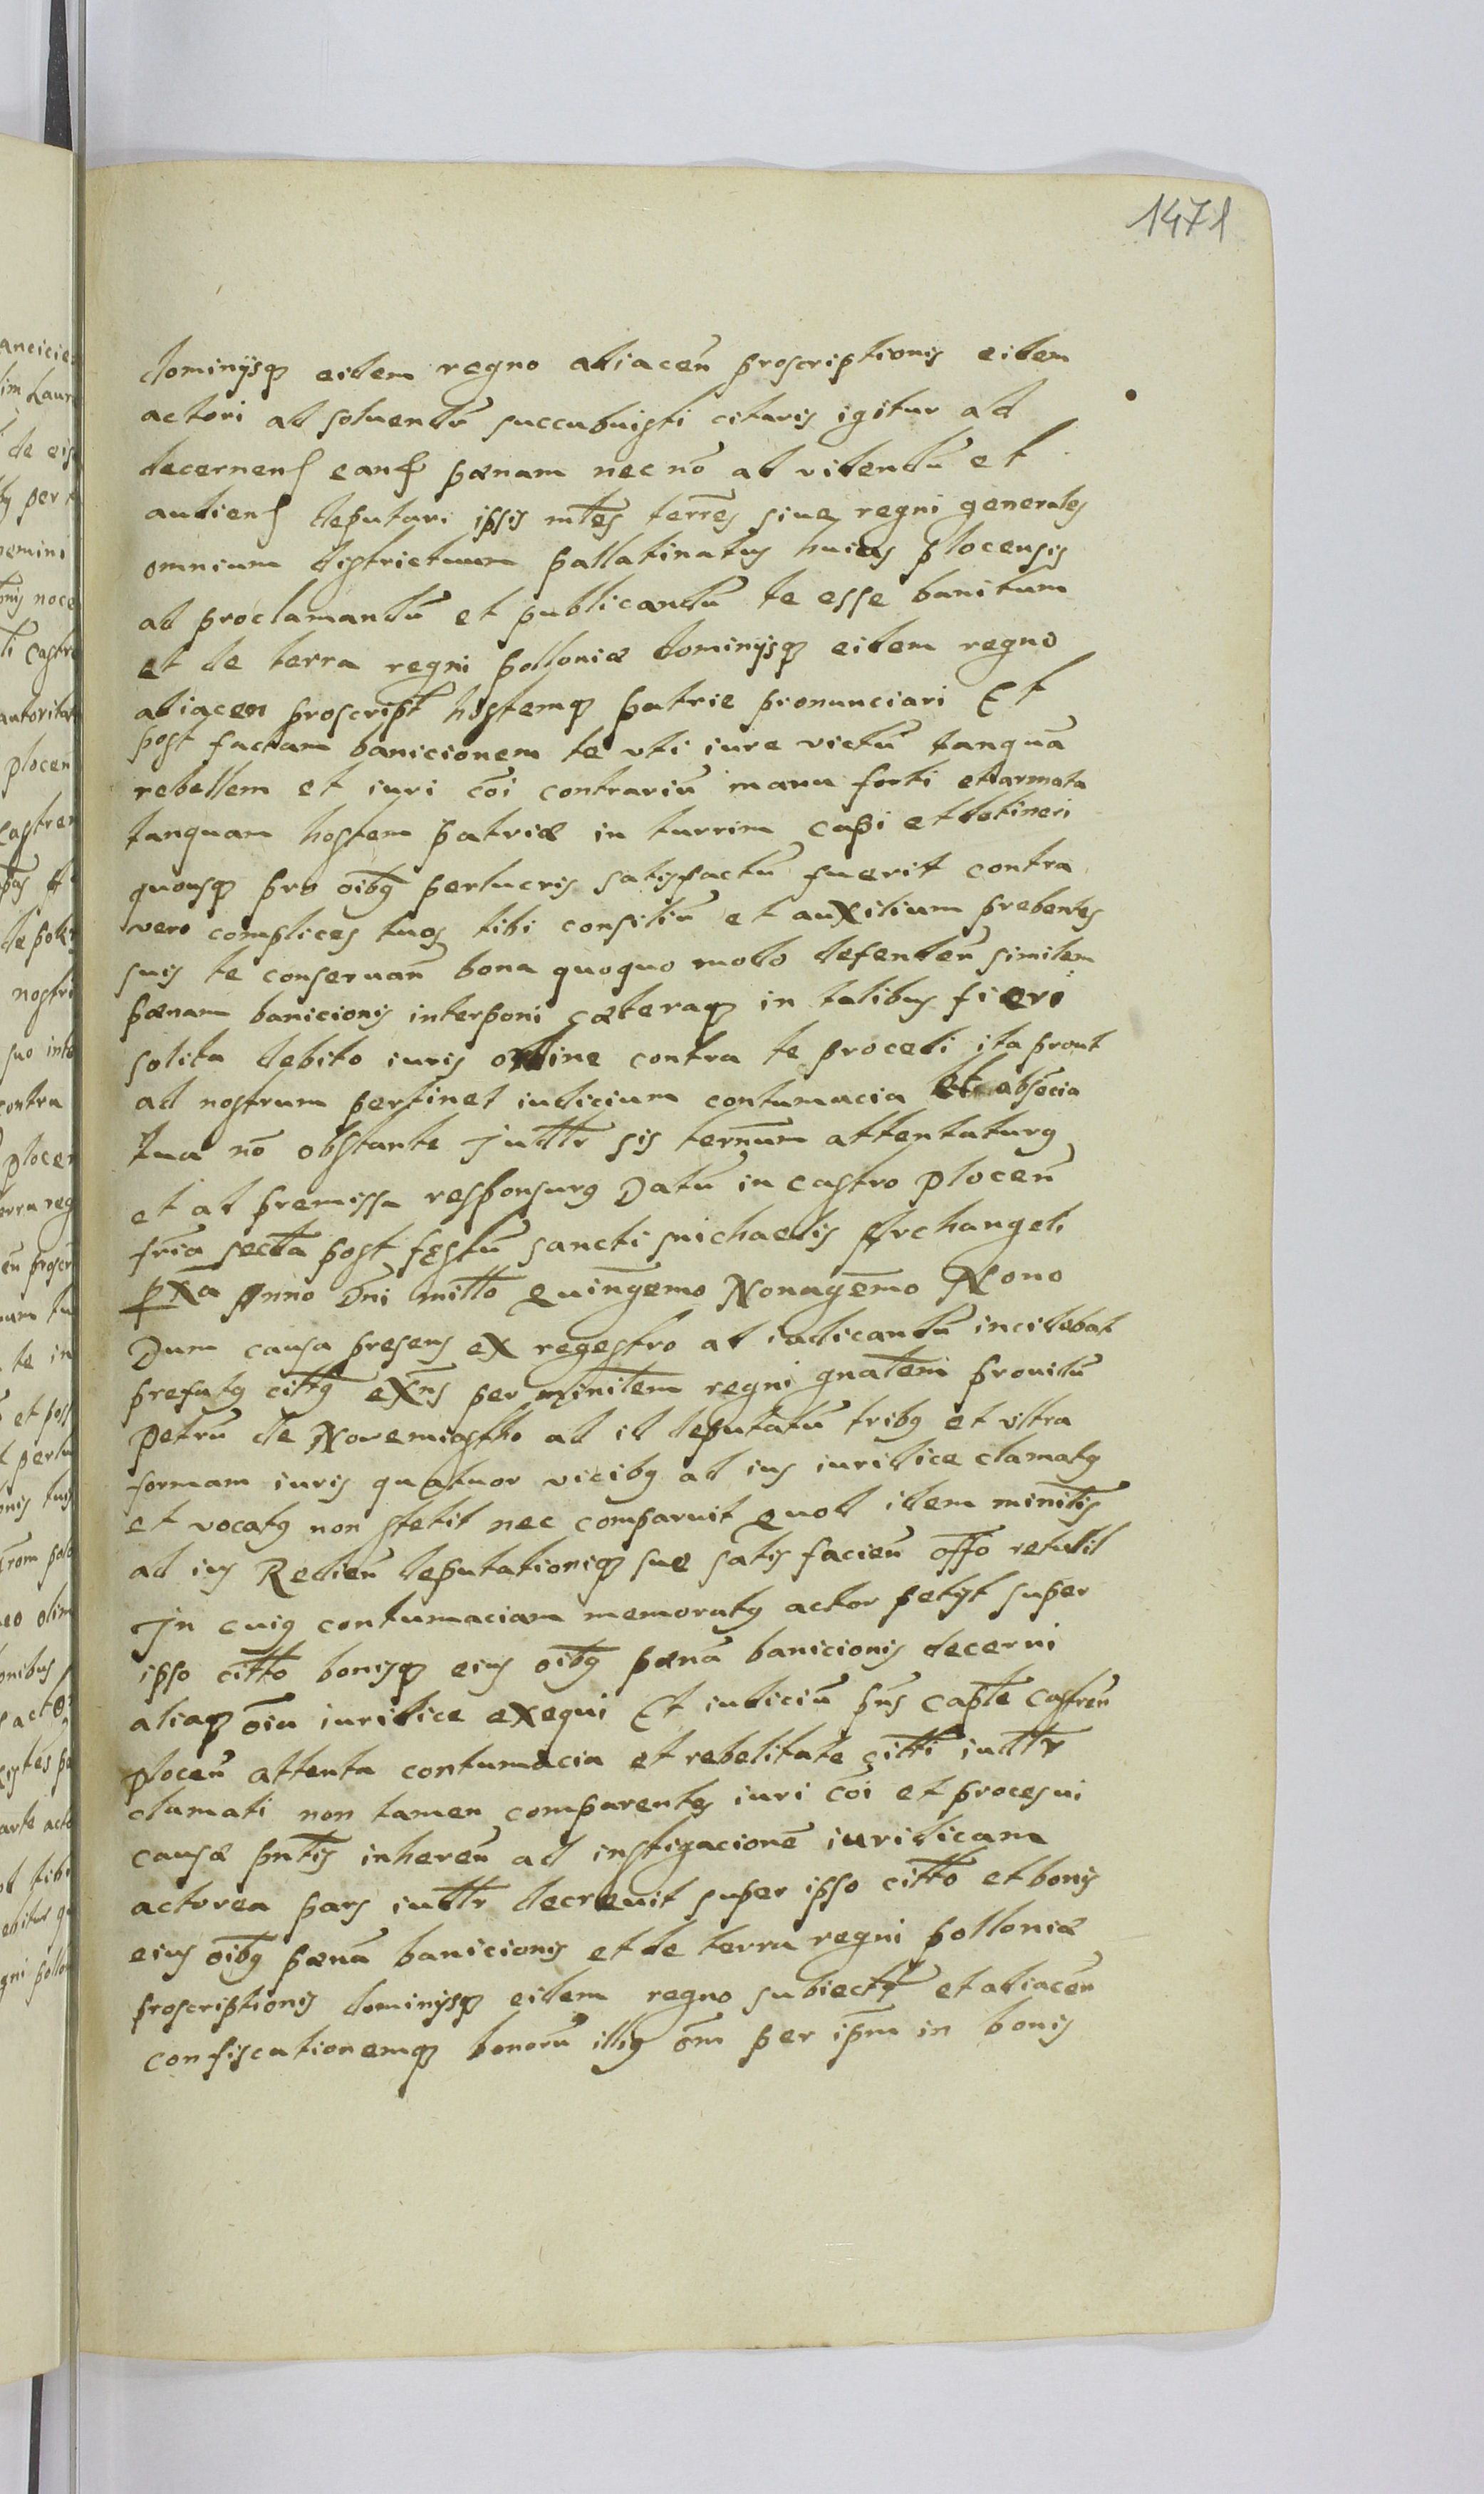 1471
dominijsq eidem regno adiaceñ proscriptionis eidem
actori ad soluendũ succubuisti citaris igitur ad
decernend eand pænam nec nõ ad videndũ et
audiend deputari ipsis mtes terres siue regni generales
omnium districtuum pallatinatus huius plocensis
ad proclamandũ et publicandũ te esse banitum
et de terra regni polloniæ dominijsq eidem regno
adiacen proscript hostemq patrie pronunciari Et
post factam banicionem te vti iure victũ tanquã
rebellem et iuri cõi contrariũ manu forti et armata
tanquam hostem patriæ in turrim capi et detineri
quousq pro oibg perlucris satisfactũ fuerit contra
vero complices tuos tibi consiliũ et auxilium prebentes
suis te conseruañ bona quoquo modo defendeñ similem
pænam banicionis interponi cæteraq in talibus fieri
solita debito iuris ordine contra te procedi ita prout
ad nostrum pertinet iudicium contumacia et absẽcia
tua nõ obstante Judtr sis termum attentaturg
et ad premissa responsurg Datũ in castro ploceñ
fria secta post festũ sancti michaelis Archangeli
pxa Anno Dni mitto quingemo Nonagemo Nono
Dum causa presens ex regestro ad iudicandũ incidebat
prefatg cittg exns per minitem regni gnalem prouidũ
petrũ de Nouemiastho ad id deputatũ tribg et vltra
formam iuris quatuor vicibg ad ius iuridice clamatg
et vocatg non stetit nec comparuit quod idem minitis
ad ius Redieñ deputationiq sue satis facieñ offo retulit
In cuig contumaciam memoratg actor petijt super
ipso citto bonisq eius oibg pænã banicionis decerni
aliaq oia iuridice exequi Et iudiciũ pns capte castreñ
ploceñ attenta contumacia et rebelitate citti iudtr
clamati non tamen comparentes iuri cõi et procesui
causæ pntis inhereñ ad instigacionẽ iuridicam
actorea pars iudtr decreuit super ipso citto et bonis
eius oibg pænã banicionis et de terra regni polloniæ
proscriptionis dominijsq eidem regno subiectg et adiaceñ
confiscationemq bonorũ illig om per ipm in bonis